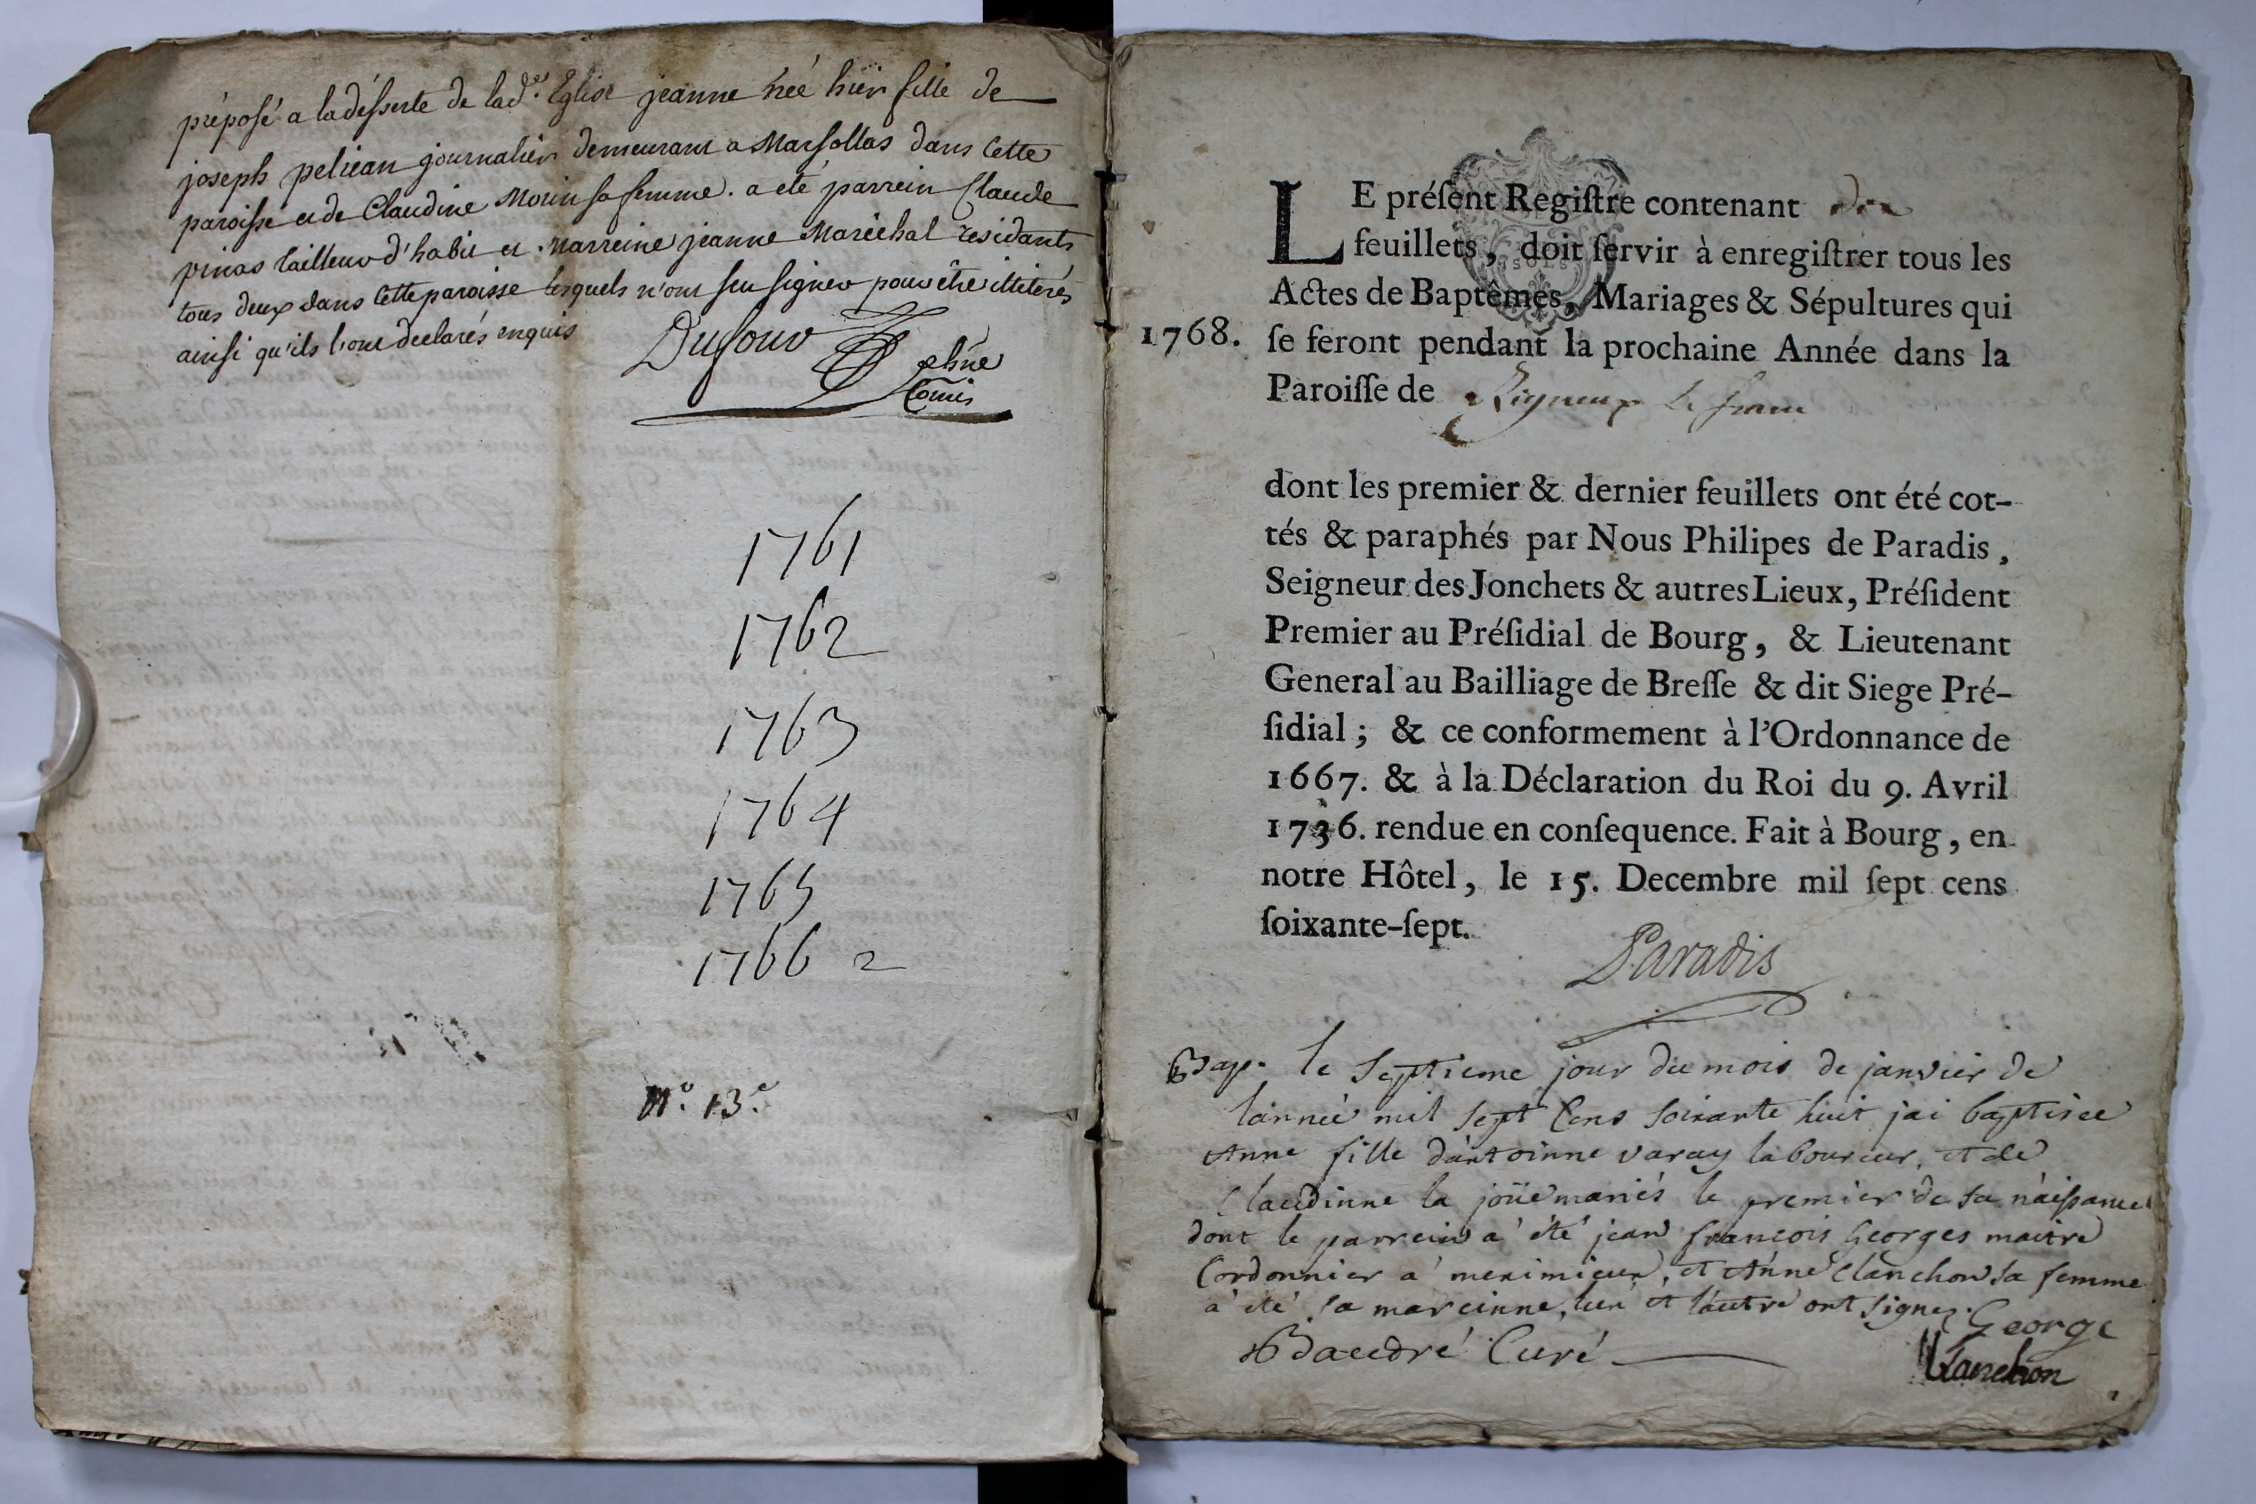 préposé a la désserte de lad.e Eglise jeanne néé hier fille de
joseph pelican journalier demeurant a Marsollas dans Cette
paroisse et de Claudine Morin sa femme. a eté parrein Claude
pinas tailleur d'habit et Marreine jeanne Maréchal residants
tous deux dans Cette paroisse lesquels n'ont seu signer pour être illiterés
ainsi qu'ils l'ont declarés enquis
Dufour
pbre
Comis
1761
1762
1763
1764
1765
1766 2
N.o 13.e
LE préſent Regiſtre contenant dix
feuillets, doit ſervir à enregiſtrer tous les
Actes de Baptêmes, Mariages & Sépultures qui
1768. ſe feront pendant la prochaine Année dans la
Paroiſſe de Rigneux le franc
dont les premier & dernier feuillets ont été cot-
tés & paraphés par Nous Philipes de Paradis,
Seigneur des Jonchets & autres Lieux, Préſident
Premier au Préſidial de Bourg, & Lieutenant
General au Bailliage de Breſſe & dit Siege Pré-
ſidial; & ce conformement à l'Ordonnance de
1667. & à la Déclaration du Roi du 9. Avril
1736. rendue en conſequence. Fait à Bourg, en
notre Hôtel, le 15. Decembre mil ſept cens
ſoixante-ſept.
Paradis
Bap. le septieme jour du mois de janvier de
lanneé mil sept Cens soixante huit jai baptisee
Anne fille dantoinne varay laboureur, et de
Claudinne la joüe mariés le premier de sa naissance
dont le parrein a été jean françois Georges maitre
Cordonnier a meximieux, et Anne Clanchon sa femme
a été sa mareinne, lun et lautre ont signez. George
Baudré Curé
Clanchon